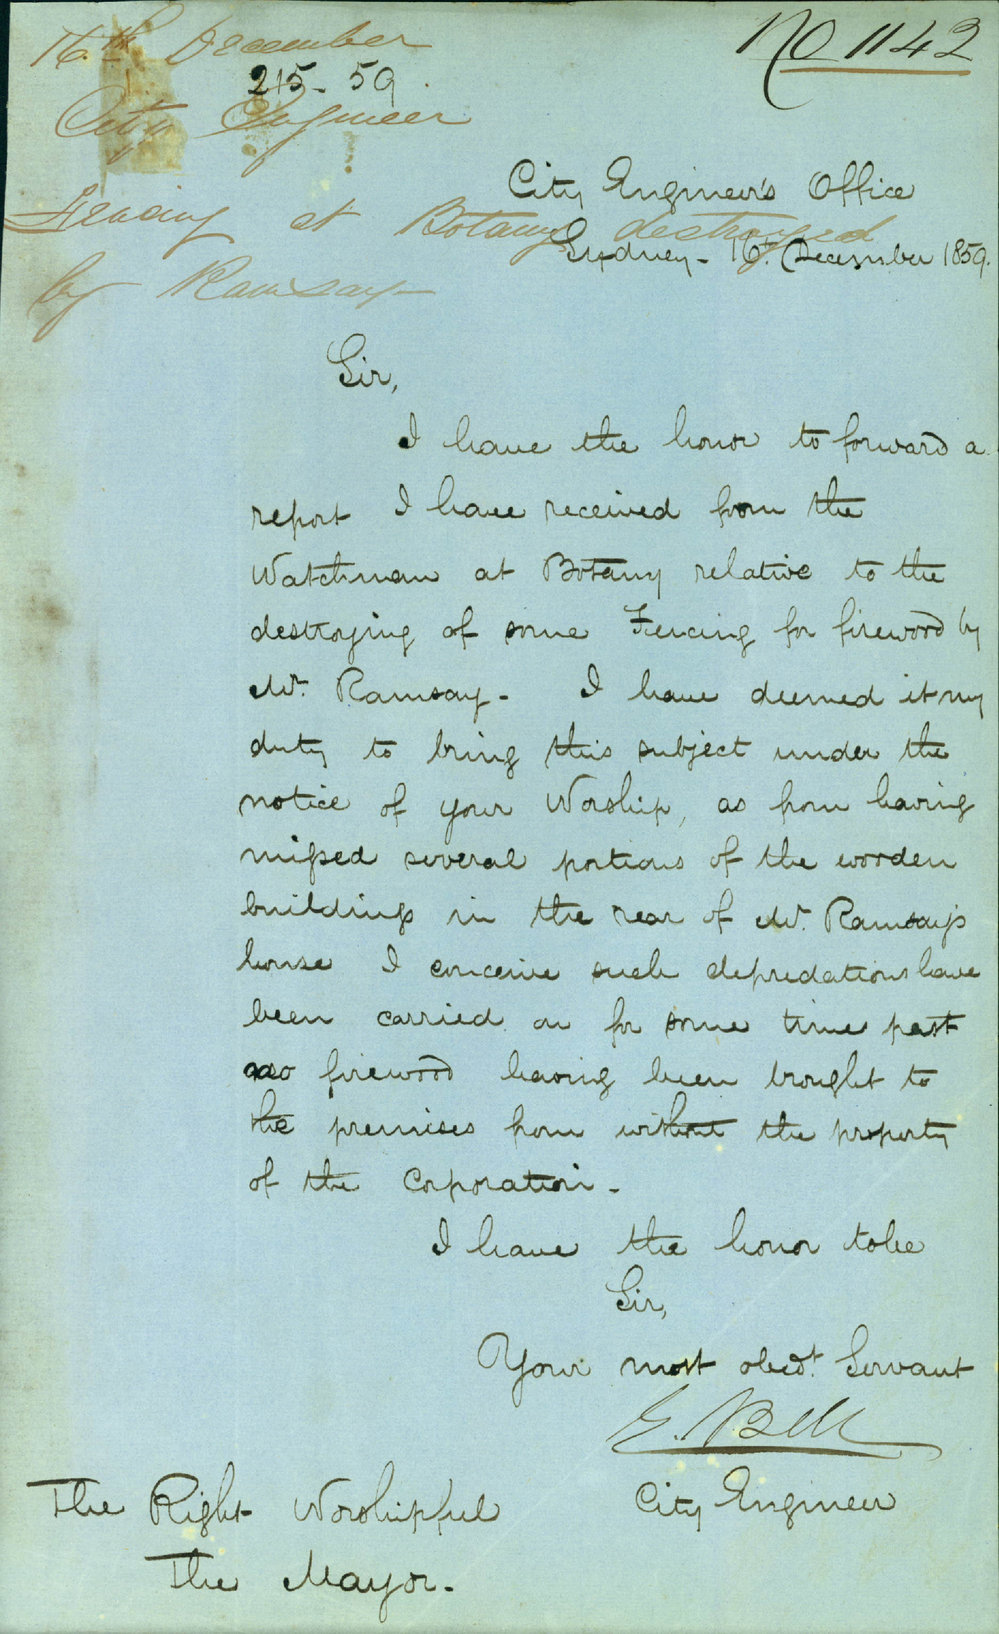 No 1142
16th December
215-59.
City Engineer
Fencing at Botany destroyed
by Ramsay-
City Engineer's Office
Sydney- 16t. December 1859.
Sir,
I have the honor to forward a
report I have received from the
Watchman at Botany relative to the
destroying of some Fencing for firewood by
Mr. Ramsay- I have deemed it my
duty to bring this subject under the
notice of your Worship, as from having
missed several portions of the wooden
buildings in the rear of Mr. Ramsay's
house I conceive such depredations have
been carried on for some time past
no firewood having been brought to
the premises from without the property
of the Corporation-
I have the honor to be
Sir,
Your most obedt. Servant
E. Bell
City Engineer
The Right Worshipful
The Mayor-